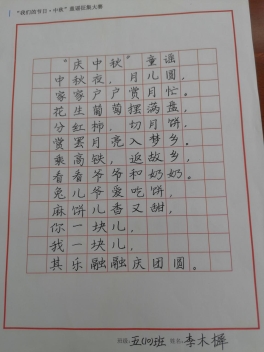 “我们的节日·中秋”童谣征集大赛
“庆中秋”童谣
中秋夜，月儿圆，
家家户户赏月忙。
花生葡萄摆满盘，
分红柿，切月饼，
赏罢月亮入梦乡。
乘高铁，返故乡，
看看爷爷和奶奶。
兔儿爷爱吃饼，
麻饼儿香又甜，
你一块儿，
我一块儿，
其乐融融庆团圆。
班级：五(10)班 姓名：李木樨